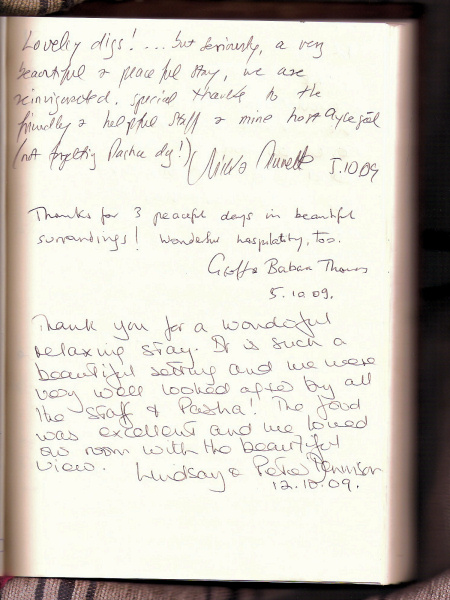 Lovely digs! ... but seriously, a very
beautiful & peaceful stay, we are
reinvigorated. special thanks to the
friendly & helpful staff & mine host Aysegül
(not forgetting Pasha dog!)
5.10.09
Thanks for 3 peaceful days in beautiful
surroundings! Wonderful hospitality, too.
Geoff &
5.10.09.
Thank you for a wonderful
relaxing stay. It is such a
beautiful setting and we were
very well looked after by all
the staff & Pasha! The food
was excellent and we loved
our room with the beautiful
view. Lindsay & Peter
12.10.09.